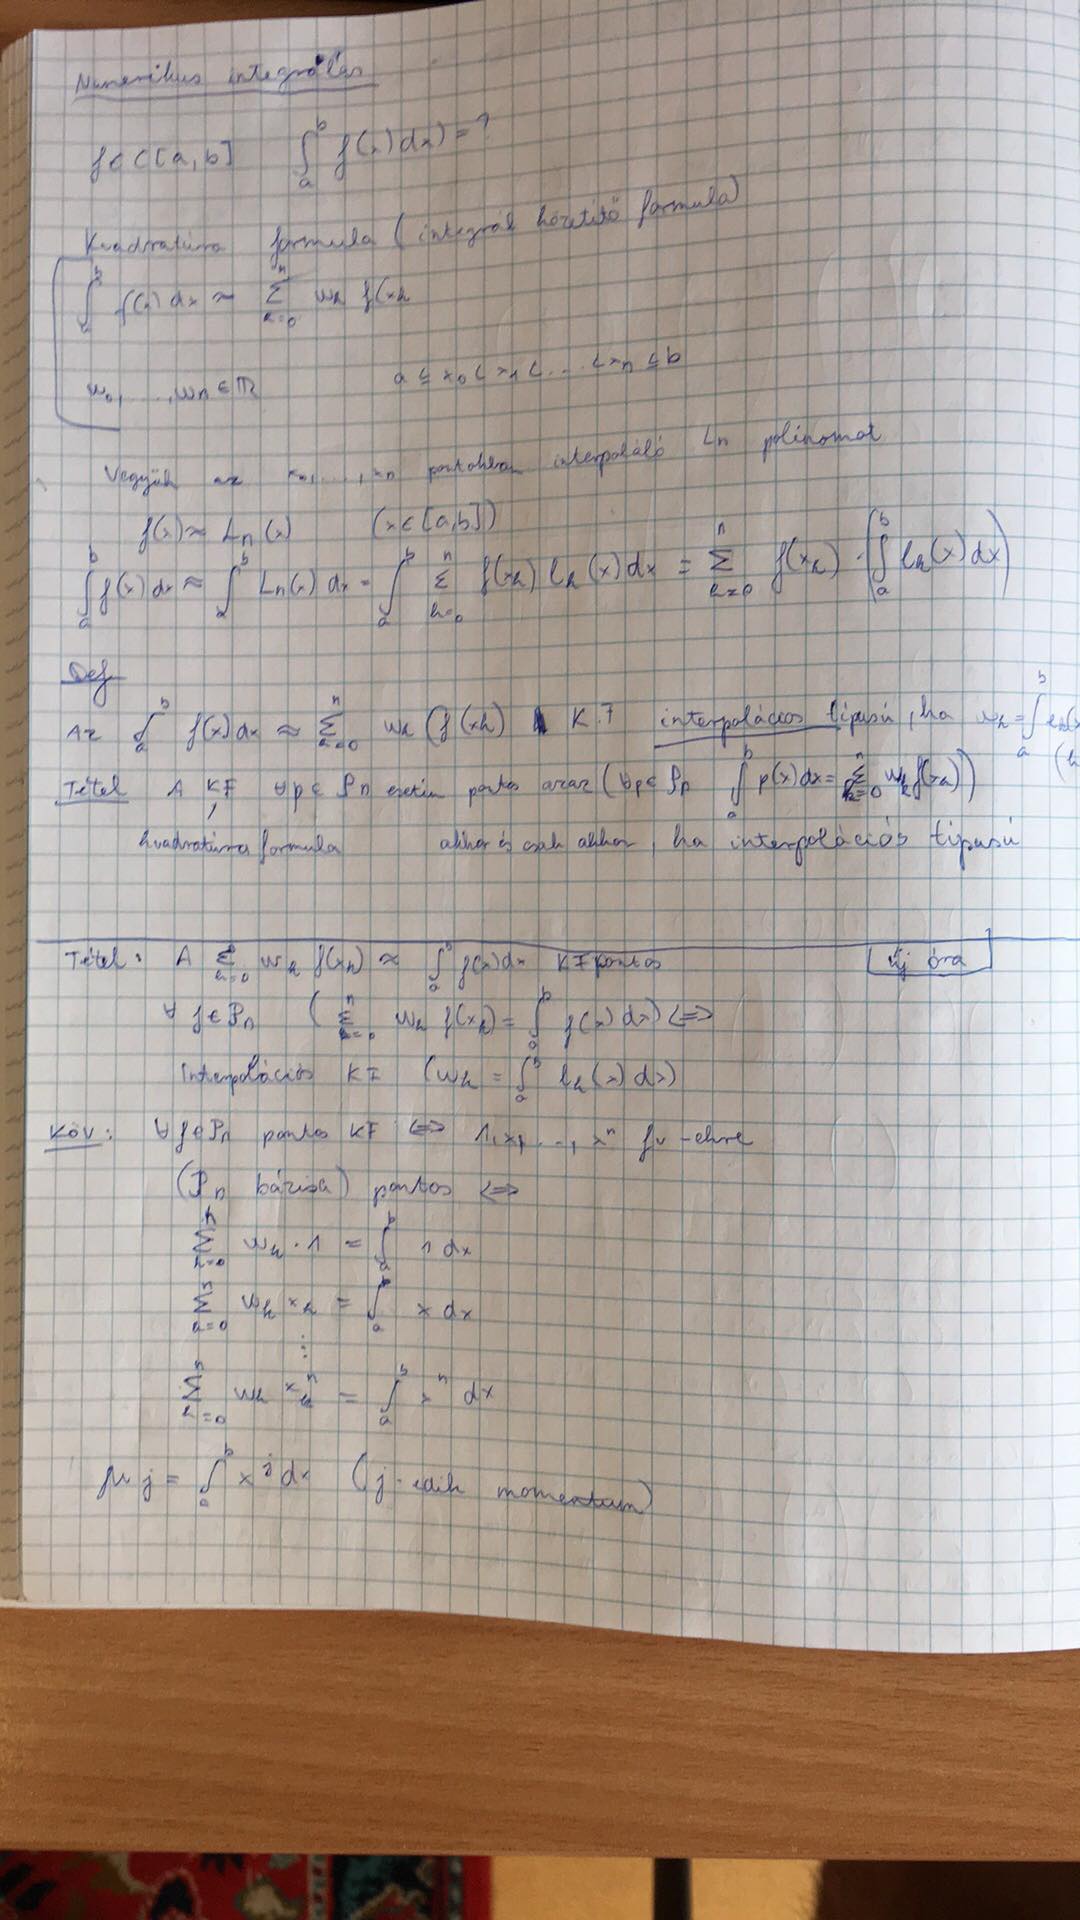 Numerikus integrálás
f ∈ C[a,b] ∫_a^b f(x) dx) = ?
Kvadratúra formula (integrál közelítő formula)
∫_a^b f(x) dx ≈ ∑_{k=0}^n w_k f(x_k
w_0, ..., w_n ∈ ℝ a ≤ x_0 < x_1 < .... < x_n ≤ b
Vegyük az x_0, ..., x_n pontokban interpoláló L_n polinomot
f(x) ≈ L_n(x) (x ∈ [a,b])
∫_a^b f(x) dx ≈ ∫_a^b L_n(x) dx = ∫_a^b ∑_{k=0}^n f(x_k) l_k(x) dx = ∑_{k=0}^n f(x_k) · (∫_a^b l_k(x) dx)
Def
Az ∫_a^b f(x) dx ≈ ∑_{k=0}^n w_k (f(x_k) K.F interpolációs típusú, ha w_k = ∫_a^b l_k(x
(k
Tétel A KF ∀p ∈ P_n esetén pontos azaz (∀p ∈ P_n ∫_a^b p(x) dx = ∑_{k=0}^n w_k f(x_k))
kvadratúra formula akkor és csak akkor, ha interpolációs típusú
Tétel: A ∑_{k=0}^n w_k f(x_k) ≈ ∫_a^b f(x) dx KF pontos Új óra
∀ f ∈ P_n (∑_{k=0}^n w_k f(x_k) = ∫_a^b f(x) dx) <=>
Interpolációs KF (w_k = ∫_a^b l_k(x) dx)
Köv: ∀ f ∈ P_n pontos KF <=> 1, x, ..., x^n fv-ekre
(P_n bázisa) pontos <=>
∑_{k=0}^n w_k · 1 = ∫_a^b 1 dx
∑_{k=0}^n w_k x_k = ∫_a^b x dx
⋮
∑_{k=0}^n w_k x_k^n = ∫_a^b x^n dx
μ_j = ∫_a^b x^j dx (j-edik momentum)